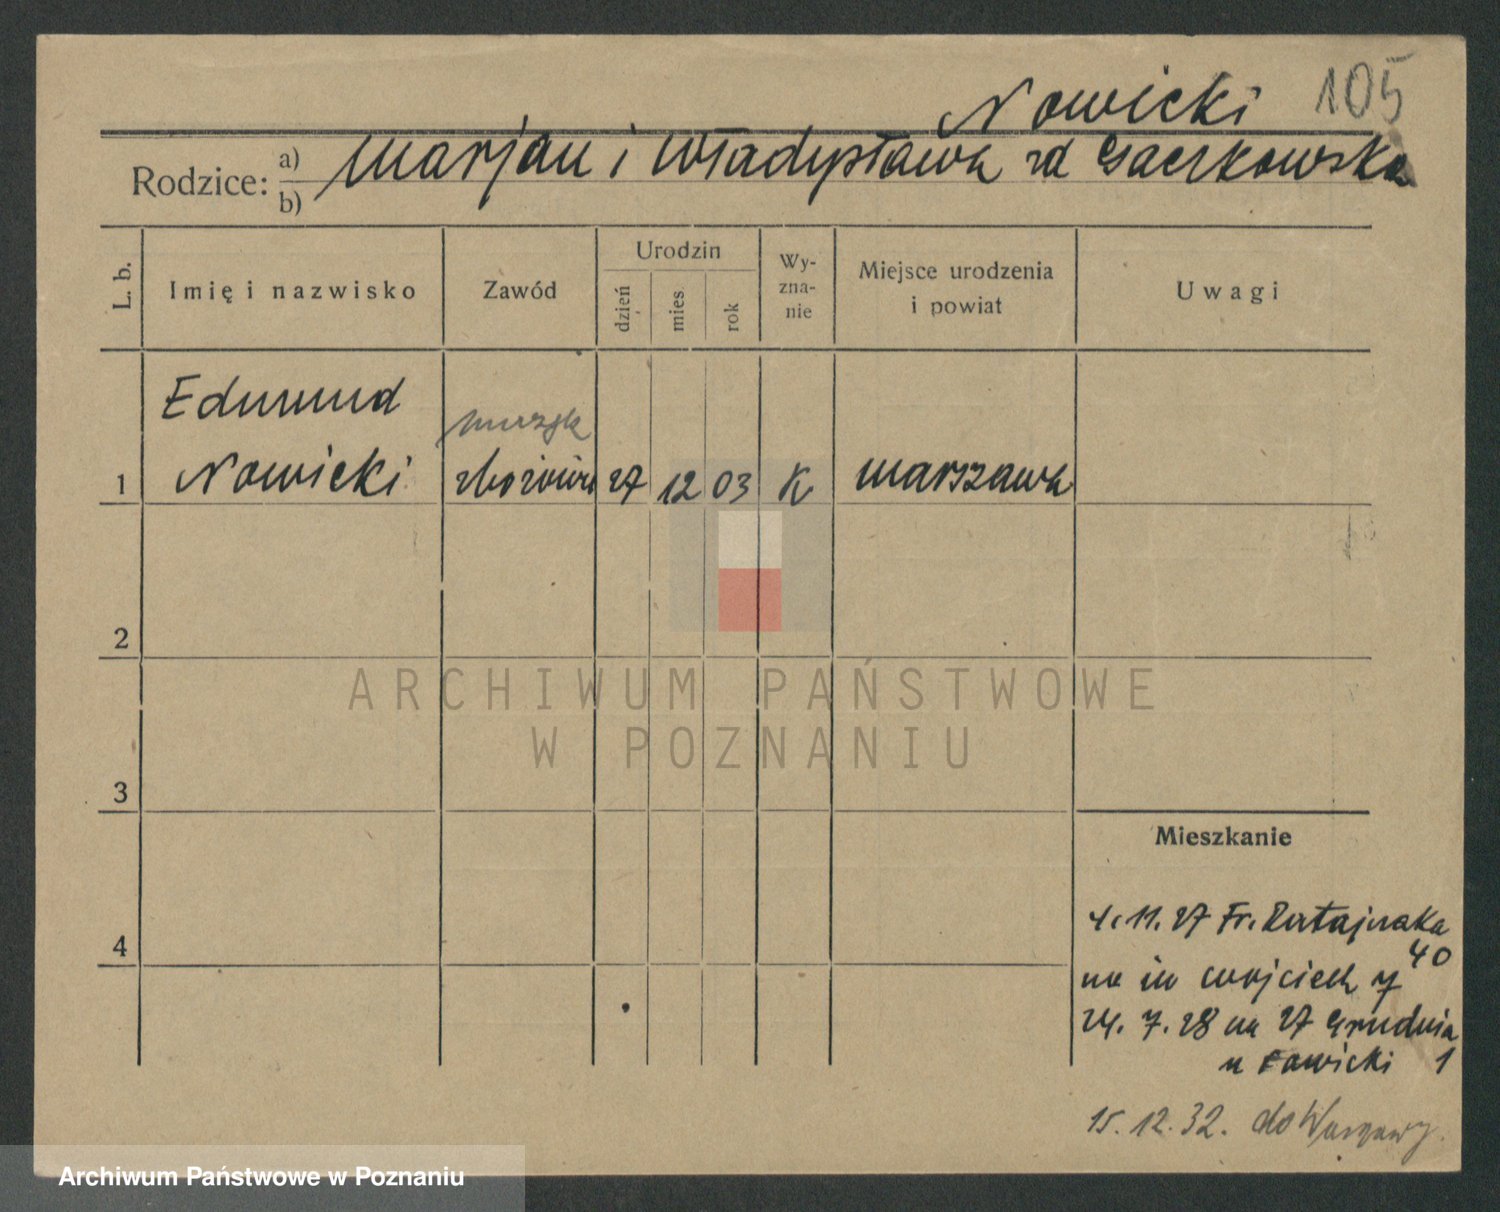 Nowicki 105
Rodzice: a) Marjan i Władysława zd Gaczkowska
b)
L. b. Imię i nazwisko Zawód Urodzin dzień mies. rok Wyznanie Miejsce urodzenia i powiat Uwagi
Edmund muzyk
1 Nowicki 27 12 03 K Warszawa
2
3
4
Mieszkanie
4.11.27 Fr. Ratajczaka
40
na św Wojciech 7
24. 7. 28 na 27 Grudnia
1
15. 12. 32. do Warszawy.
ARCHIWUM PAŃSTWOWE
W POZNANIU
Archiwum Państwowe w Poznaniu